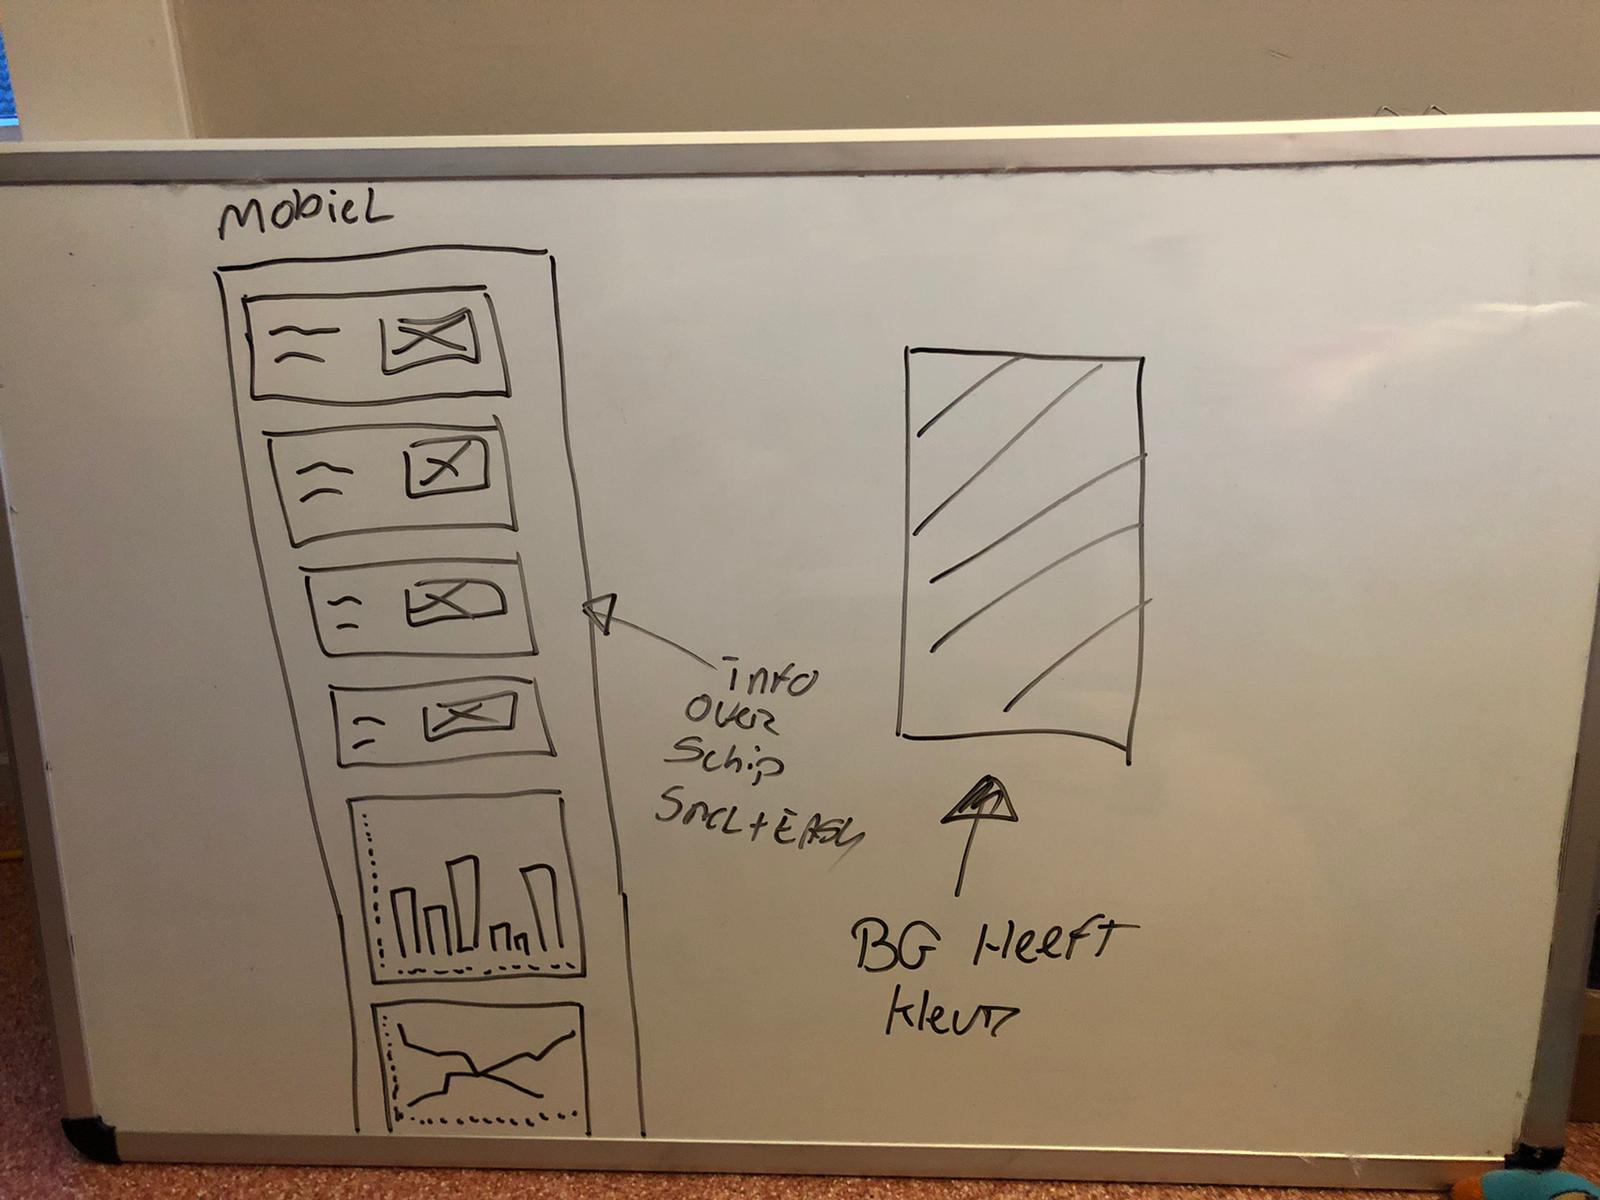 Mobiel
info
over
Schip
Snel + Easy
BG Heeft
kleur